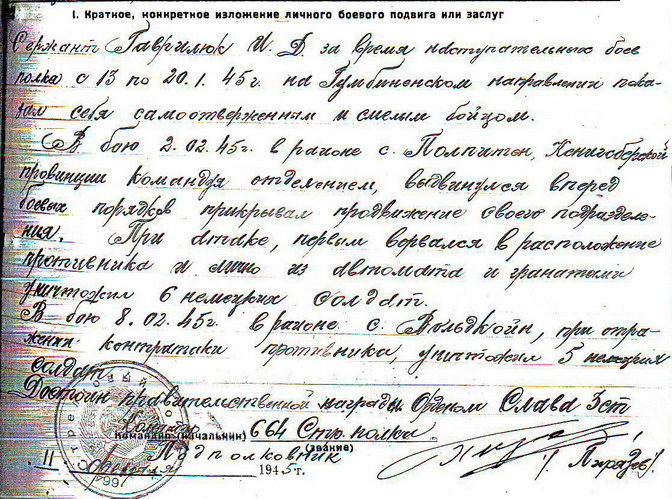 I. Краткое, конкретное изложение личного боевого подвига или заслуг
Сержант Гаврилюк И. Д. за время наступательных боев
полка с 13 по 20.1.45г. на Гумбиненском направлении пока-
зал себя самоотверженным и смелым бойцом.
В бою 2.02.45г. в районе с. Полпитен, Кенигсбергской
провинции командуя отделением, выдвинулся вперед
боевых порядков прикрывал продвижение своего подразделе-
ния. При атаке, первым ворвался в расположение
противника и лично из автомата и гранатами
уничтожил 6 немецких солдат.
В бою 8.02.45г. в районе с. Вольдкойн, при отра-
жении контратаки противника, уничтожил 5 немецких
солдат.
Достоин правительственной награды Орденом Слава 3 ст
Командир (начальник) 664 Стр. полка
Подполковник (звание)
11 февраля 1945г.